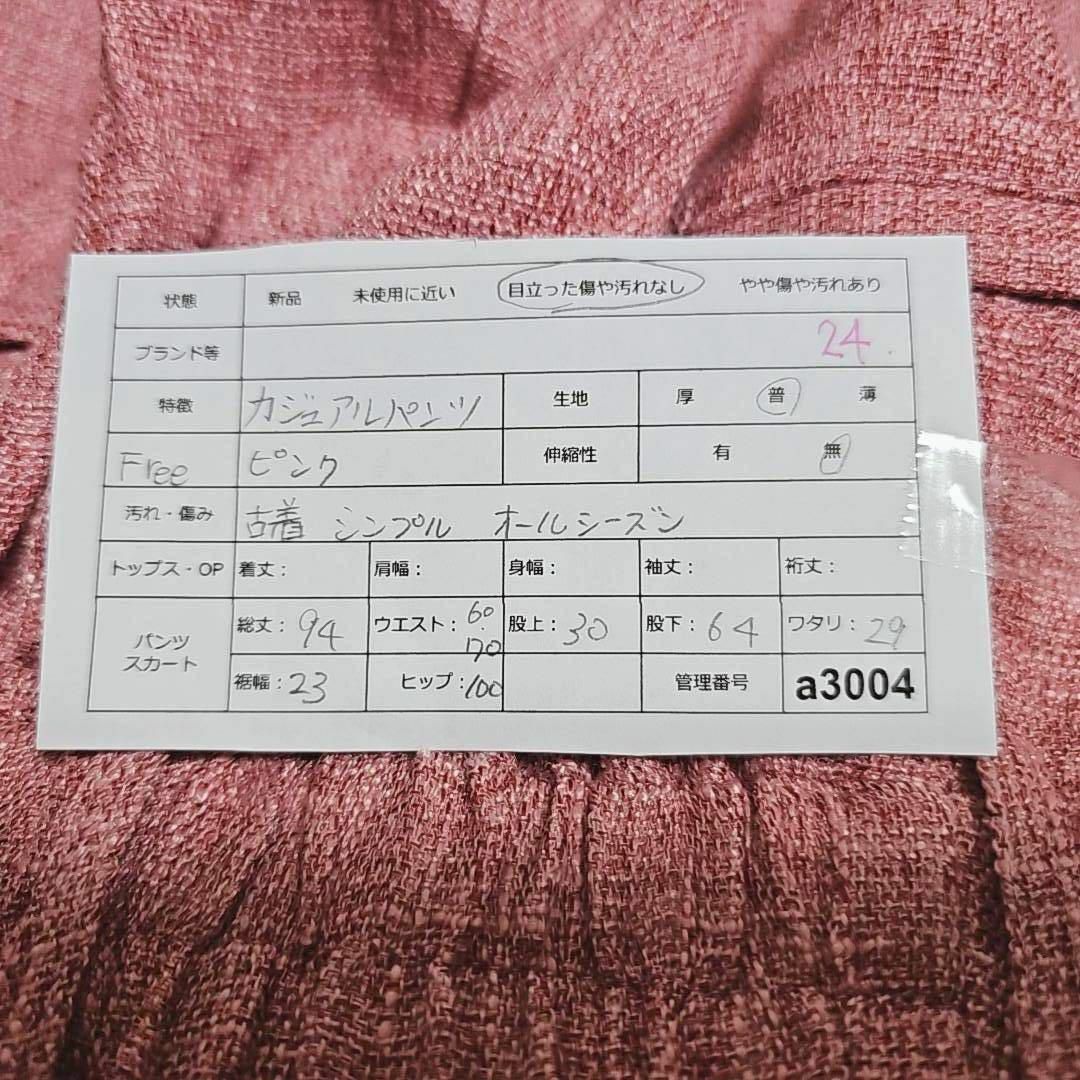 状態 新品 未使用に近い 目立った傷や汚れなし やや傷や汚れあり
ブランド等 24.
特徴 カジュアルパンツ 生地 厚 普 薄
Free ピンク 伸縮性 有 無
汚れ・傷み 古着 シンプル オールシーズン
トップス・OP 着丈: 肩幅: 身幅: 袖丈: 裄丈:
パンツ
スカート
総丈: 94 ウエスト: 60
・
70 股上: 30 股下: 64 ワタリ: 29
裾幅: 23 ヒップ: 100 管理番号 a3004